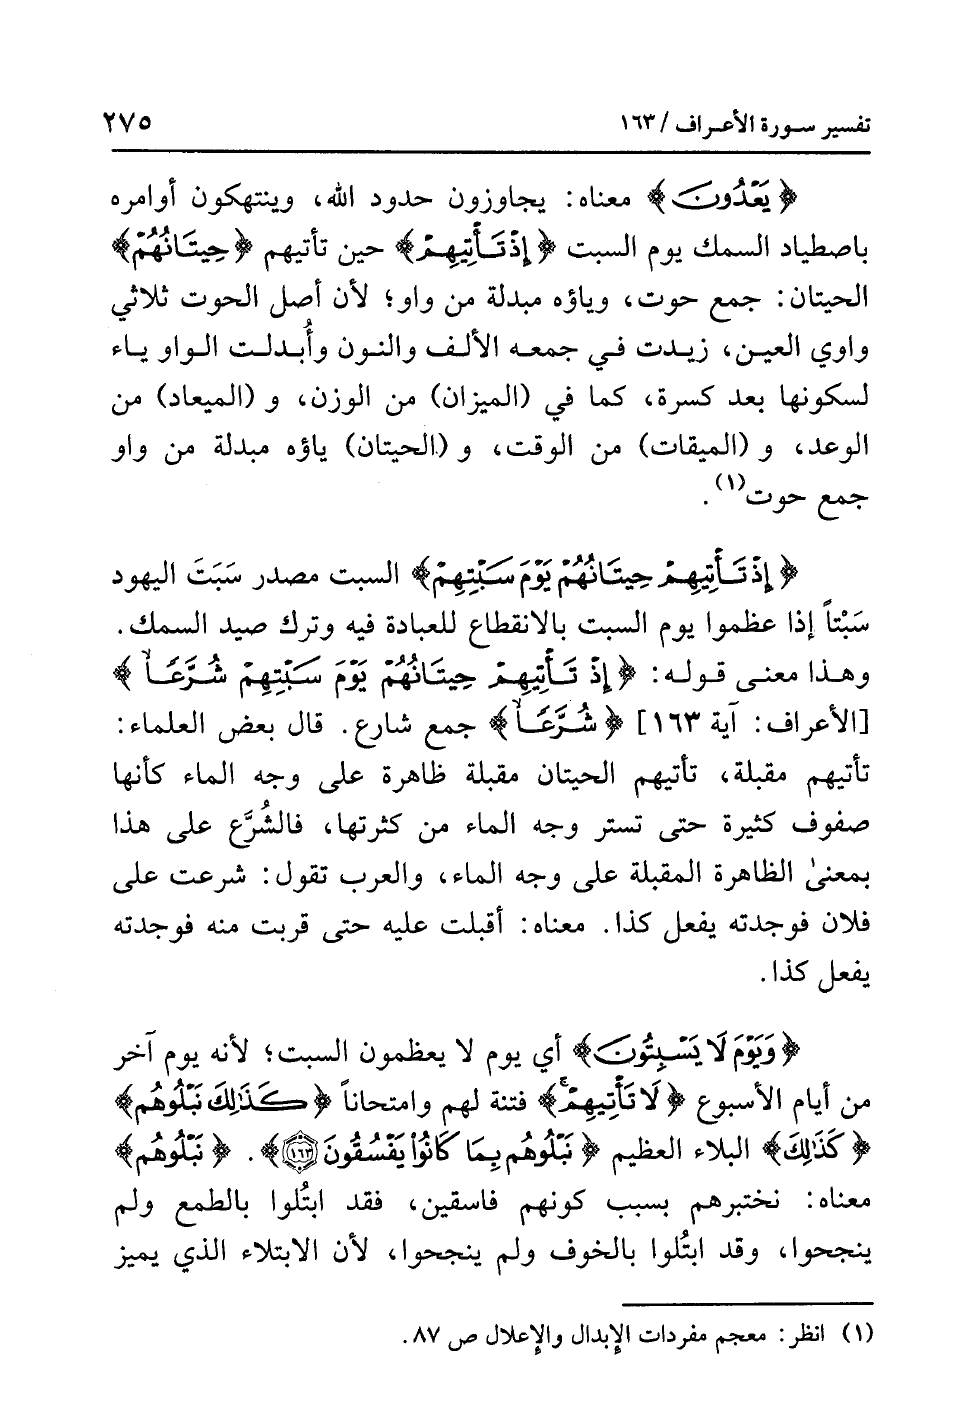 تفسير سورة الأعراف / ١٦٣ ٢٧٥
﴿يَعْدُونَ﴾ معناه: يجاوزون حدود الله، وينتهكون أوامره
باصطياد السمك يوم السبت ﴿إِذْ تَأْتِيهِمْ﴾ حين تأتيهم ﴿حِيتَانُهُمْ﴾
الحيتان: جمع حوت، وياؤه مبدلة من واو؛ لأن أصل الحوت ثلاثي
واوي العين، زيدت في جمعه الألف والنون وأُبدلت الواو ياء
لسكونها بعد كسرة، كما في (الميزان) من الوزن، و (الميعاد) من
الوعد، و (الميقات) من الوقت، و (الحيتان) ياؤه مبدلة من واو
جمع حوت(١).
﴿إِذْ تَأْتِيهِمْ حِيتَانُهُمْ يَوْمَ سَبْتِهِمْ﴾ السبت مصدر سَبَتَ اليهود
سَبْتاً إذا عظموا يوم السبت بالانقطاع للعبادة فيه وترك صيد السمك.
وهذا معنى قوله: ﴿إِذْ تَأْتِيهِمْ حِيتَانُهُمْ يَوْمَ سَبْتِهِمْ شُرَّعًا﴾
[الأعراف: آية ١٦٣] ﴿شُرَّعًا﴾ جمع شارع. قال بعض العلماء:
تأتيهم مقبلة، تأتيهم الحيتان مقبلة ظاهرة على وجه الماء كأنها
صفوف كثيرة حتى تستر وجه الماء من كثرتها، فالشُرَّع على هذا
بمعنىٰ الظاهرة المقبلة على وجه الماء، والعرب تقول: شرعت على
فلان فوجدته يفعل كذا. معناه: أقبلت عليه حتى قربت منه فوجدته
يفعل كذا.
﴿وَيَوْمَ لَا يَسْبِتُونَ﴾ أي يوم لا يعظمون السبت؛ لأنه يوم آخر
من أيام الأسبوع ﴿لَا تَأْتِيهِمْ ۚ﴾ فتنة لهم وامتحاناً ﴿كَذَٰلِكَ نَبْلُوهُم﴾
﴿كَذَٰلِكَ﴾ البلاء العظيم ﴿نَبْلُوهُم بِمَا كَانُوا۟ يَفْسُقُونَ ١٦٣﴾. ﴿نَبْلُوهُم﴾
معناه: نختبرهم بسبب كونهم فاسقين، فقد ابتُلوا بالطمع ولم
ينجحوا، وقد ابتُلوا بالخوف ولم ينجحوا، لأن الابتلاء الذي يميز
(١) انظر: معجم مفردات الإبدال والإعلال ص ٨٧.